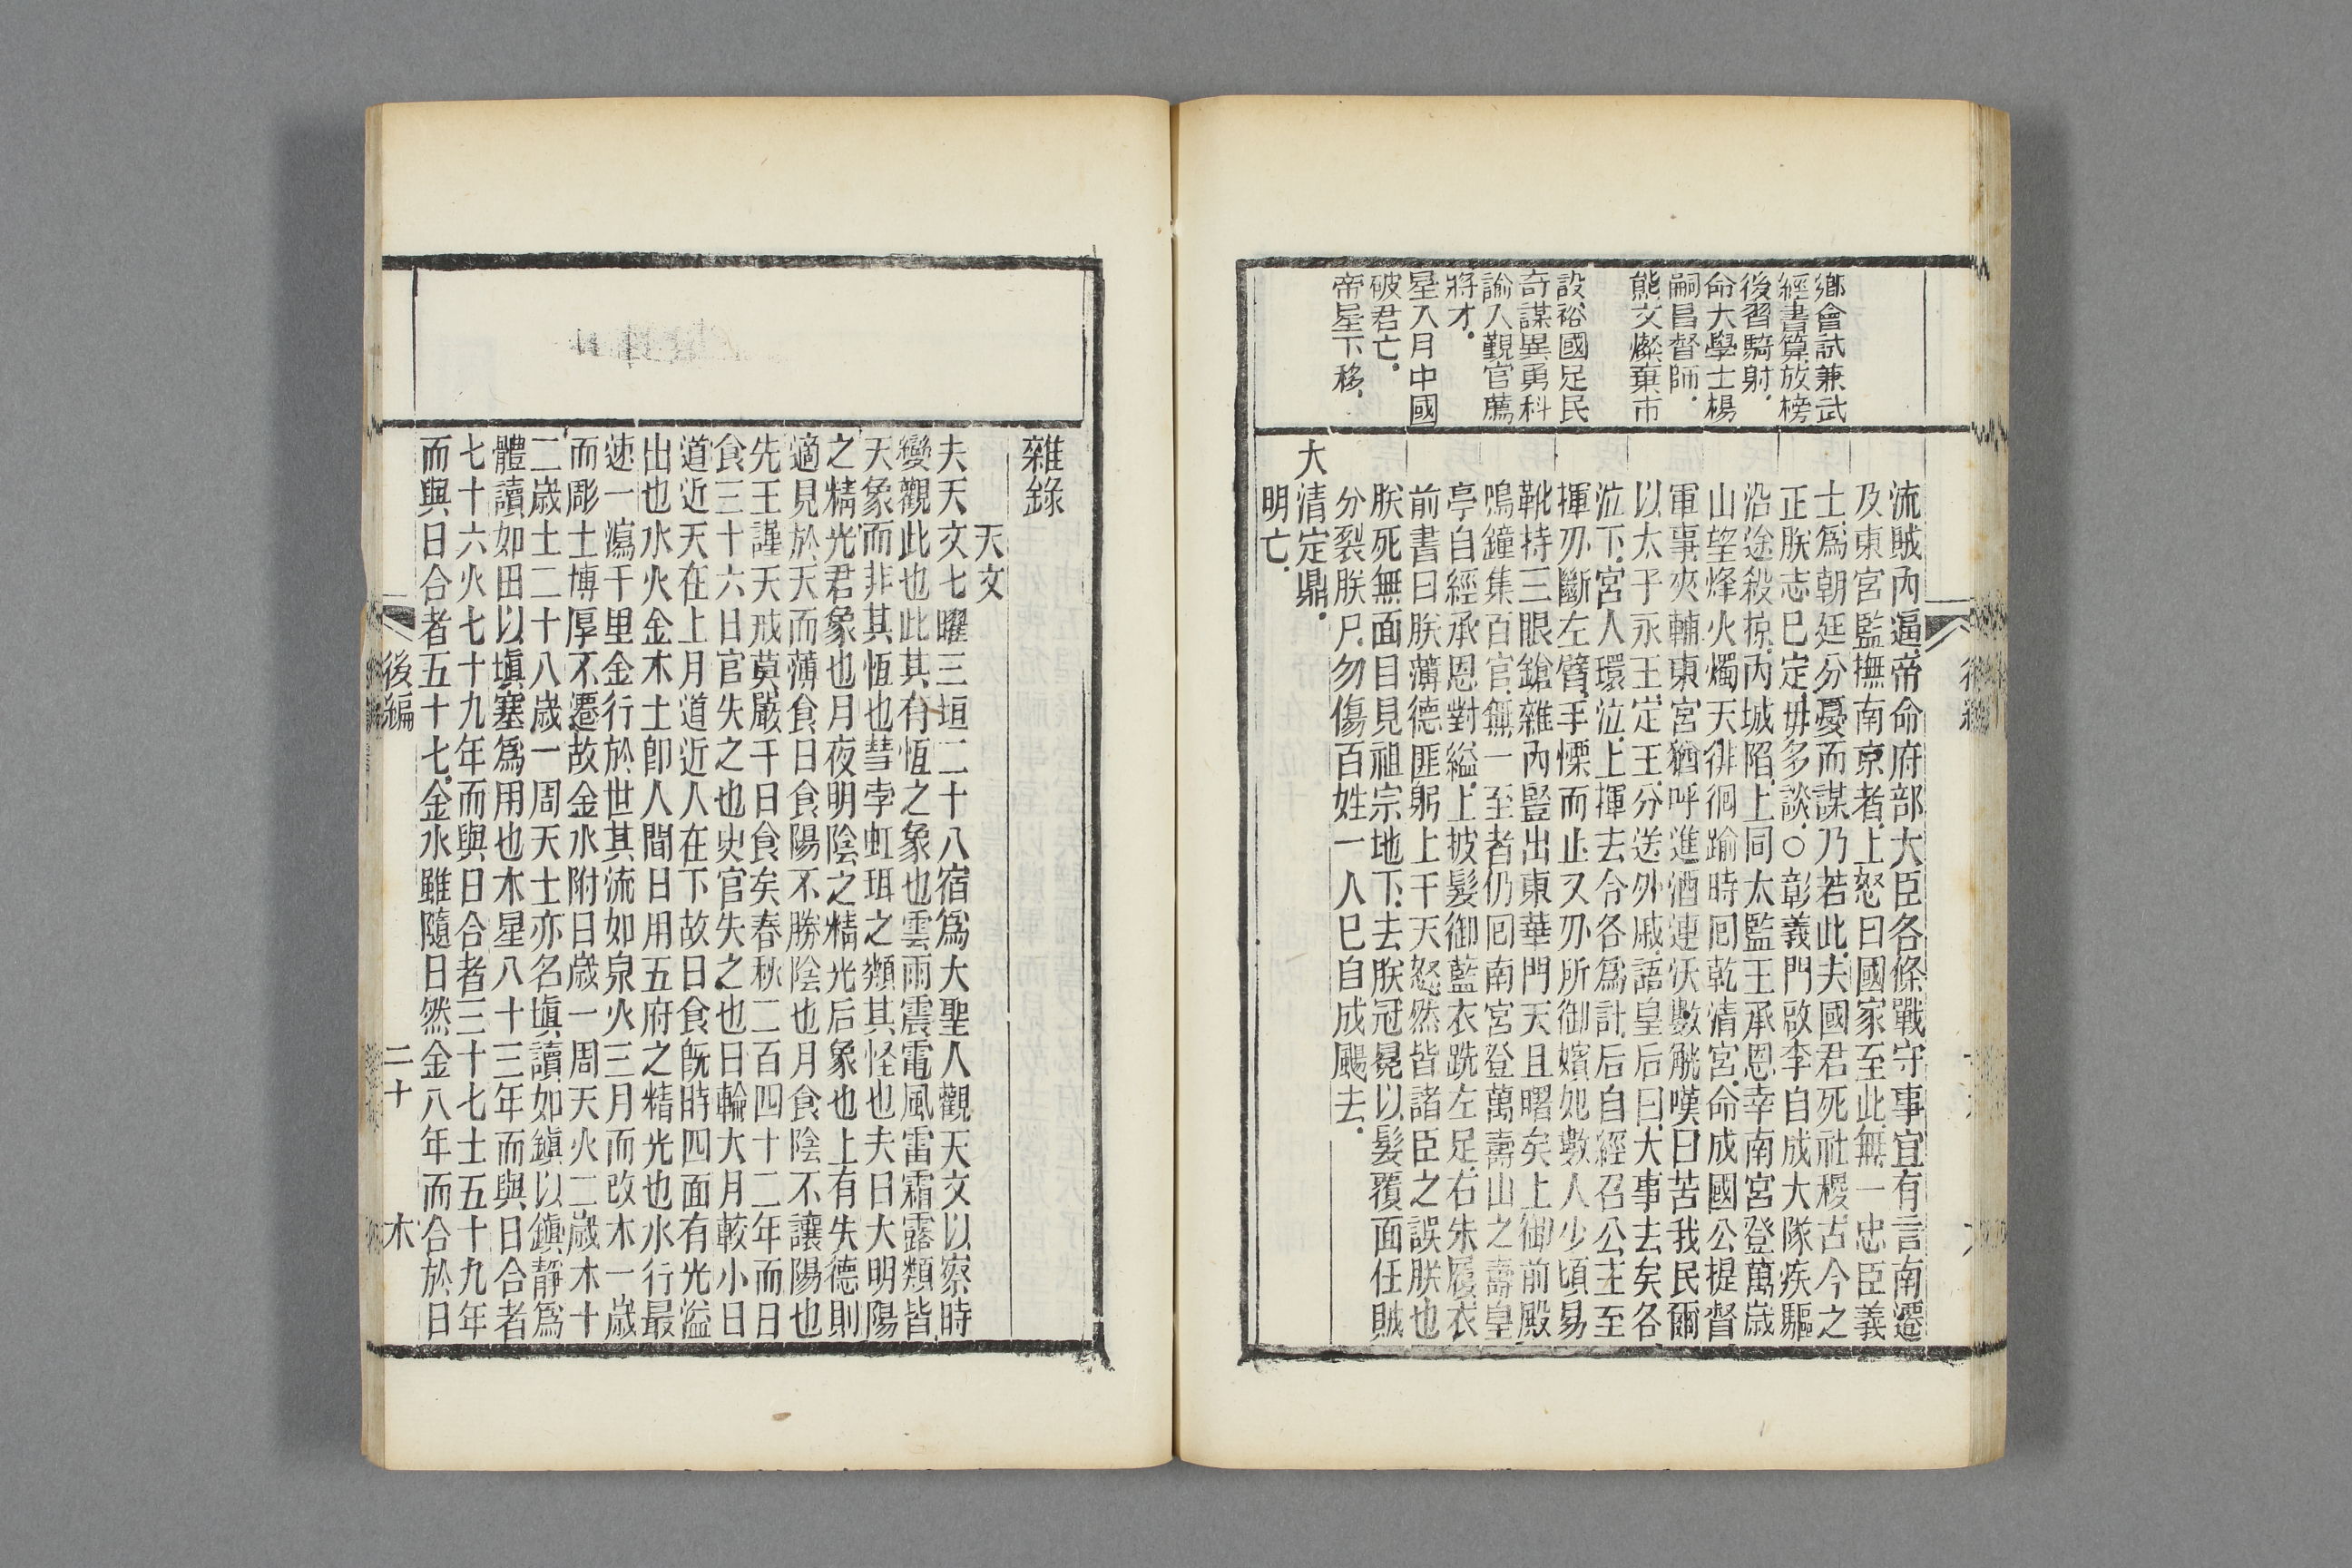 鄉會試兼武
經書算放榜
後習騎射.
命大學士楊
嗣昌督師.
熊文燦棄市
設裕國足民
奇謀異勇科
諭入覲官薦
將才.
星入月中國
破君亡.
帝星下移.
流賊內逼.帝命府部大臣各條戰守事宜有言南遷
及東宮監撫南京者.上怒曰國家至此.無一忠臣義
士.爲朝廷分憂而謀乃若此.夫國君死社稷古今之
正朕志已定.毋多談.○彰義門啟李自成大隊疾驅
沿途殺掠.內城陷.上同太監王承恩幸南宮登萬歲
山望烽火燭天徘徊踰時囘乾清宮.命成國公提督
軍事.夾輔東宮猶呼進酒連沃數觥嘆曰苦我民爾
以太子永王.定王.分送外戚.語皇后曰.大事去矣各
泣下.宮人環泣.上揮去令各爲計.后自經召公主至
揮刃斷左臂.手慄而止又刃所御嬪妃數人少頃易
靴持三眼鎗雜內豎出東華門天且曙矣上御前殿
鳴鐘集百官無一至者仍囘南宮登萬壽山之壽皇
亭自經承恩對縊.上披髮御藍衣跣左足.右朱履衣
前書曰朕薄德匪躬上干天怒然皆諸臣之誤朕也
朕死無面目見祖宗地下.去朕冠冕以髮覆面任賊
分裂朕尸.勿傷百姓一人已自成颺去.
大清定鼎.
明亡.
雜錄
天文
夫天文七曜三垣二十八宿爲大聖人觀天文以察時
變觀此也此其有恆之象也雲雨震電風雷霜露類皆
天象而非其恆也彗孛虹珥之類其怪也夫日大明陽
之精光君象也月夜明陰之精光后象也上有失德則
適見於天而薄食日食陽不勝陰也月食陰不讓陽也
先王謹天戒莫嚴于日食矣春秋二百四十二年而日
食三十六日官失之也史官失之也日輪大月較小日
道近天在上月道近人在下故日食旣時四面有光溢
出也水火金木土卽人間日用五府之精光也水行最
速一瀉千里金行於世其流如泉火三月而改木一歲
而彫土博厚不遷故金水附日歲一周天火二歲木十
二歲土二十八歲一周天土亦名塡讀如鎮以鎮靜爲
體讀如田以塡塞爲用也木星八十三年而與日合者
七十六火七十九年而與日合者三十七土五十九年
而與日合者五十七金水雖隨日然金八年而合於日
後編 二十 木